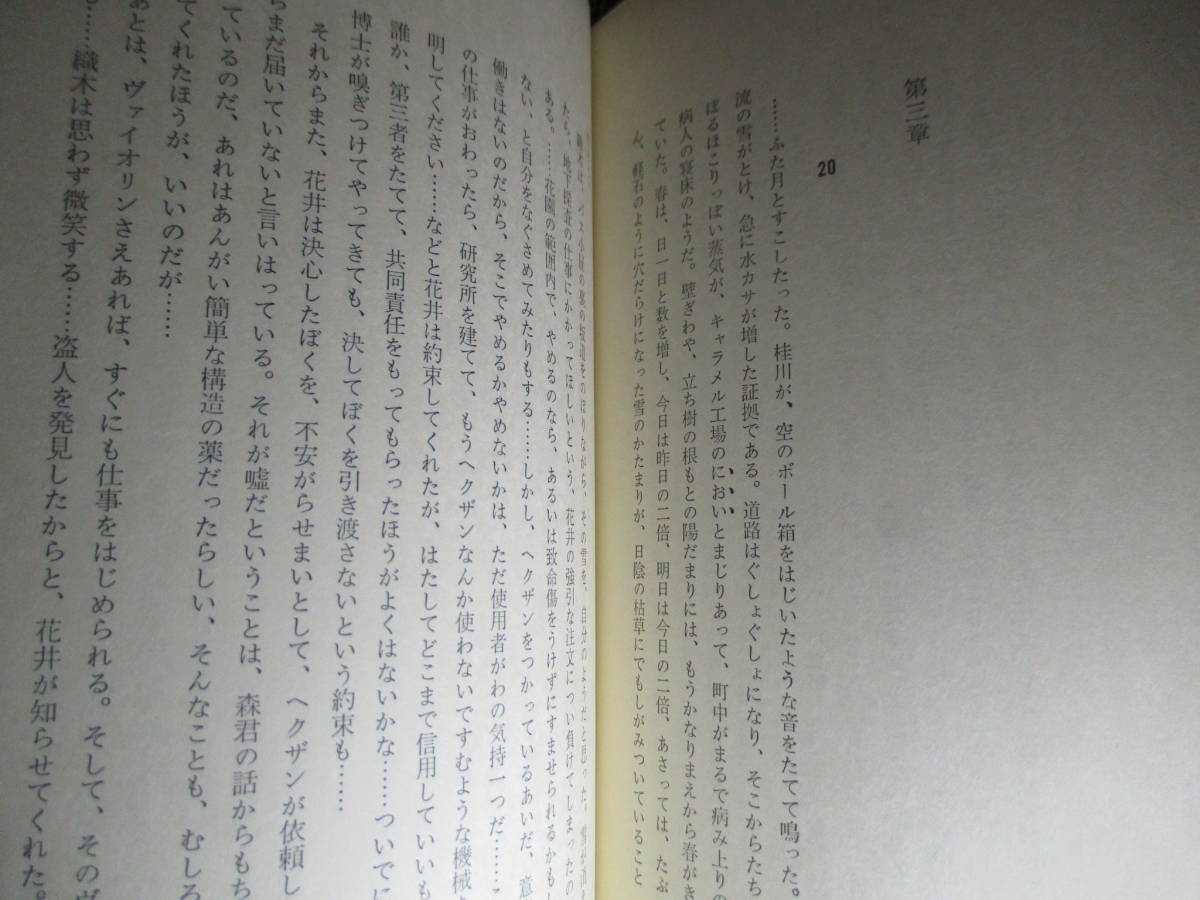 第三章
20
……ふた月とすこしたった。桂川が、空のボール箱をはじいたような音をたてて鳴った。
流の雪がとけ、急に水カサが増した証拠である。道路はぐしょぐしょになり、そこからたち
ぼるほこりっぽい蒸気が、キャラメル工場のにおいとまじりあって、町中がまるで病み上りの
病人の寝床のようだ。壁ぎわや、立ち樹の根もとの陽だまりには、もうかなりまえから春がき
ていた。春は、日一日と数を増し、今日は昨日の二倍、明日は今日の二倍、あさっては、たぶ
ん、軽石のように穴だらけになった雪のかたまりが、日陰の枯草にでもしがみついていること
織木は、バス小屋の裏の坂道をのぼりながら、その雪を、自分のようだと思った。
たち、地下探査の仕事にかかってほしいという、花井の強引な注文につい負けてしまったの
ある。……花園の範囲内で、やめるのなら、あるいは致命傷をうけずにすませられるかもし
ない、と自分をなぐさめてみたりもする……しかし、ヘクザンをつかっているあいだ、意
働きはないのだから、そこでやめるかやめないかは、ただ使用者がわの気持一つだ……
の仕事がおわったら、研究所を建てて、もうヘクザンなんか使わないですむような機械
明してください……などと花井は約束してくれたが、はたしてどこまで信用していいも
誰か、第三者をたてて、共同責任をもってもらったほうがよくはないかな……ついでに
博士が嗅ぎつけてやってきても、決してぼくを引き渡さないという約束も……
それからまた、花井は決心したぼくを、不安がらせまいとして、ヘクザンが依頼し
らまだ届いていないと言いはっている。それが嘘だということは、森君の話からもち
ているのだ、あれはあんがい簡単な構造の薬だったらしい、そんなことも、むしろ
てくれたほうが、いいのだが……
あとは、ヴァイオリンさえあれば、すぐにも仕事をはじめられる。そして、そのヴ
……織木は思わず微笑する……盗人を発見したからと、花井が知らせてくれた。